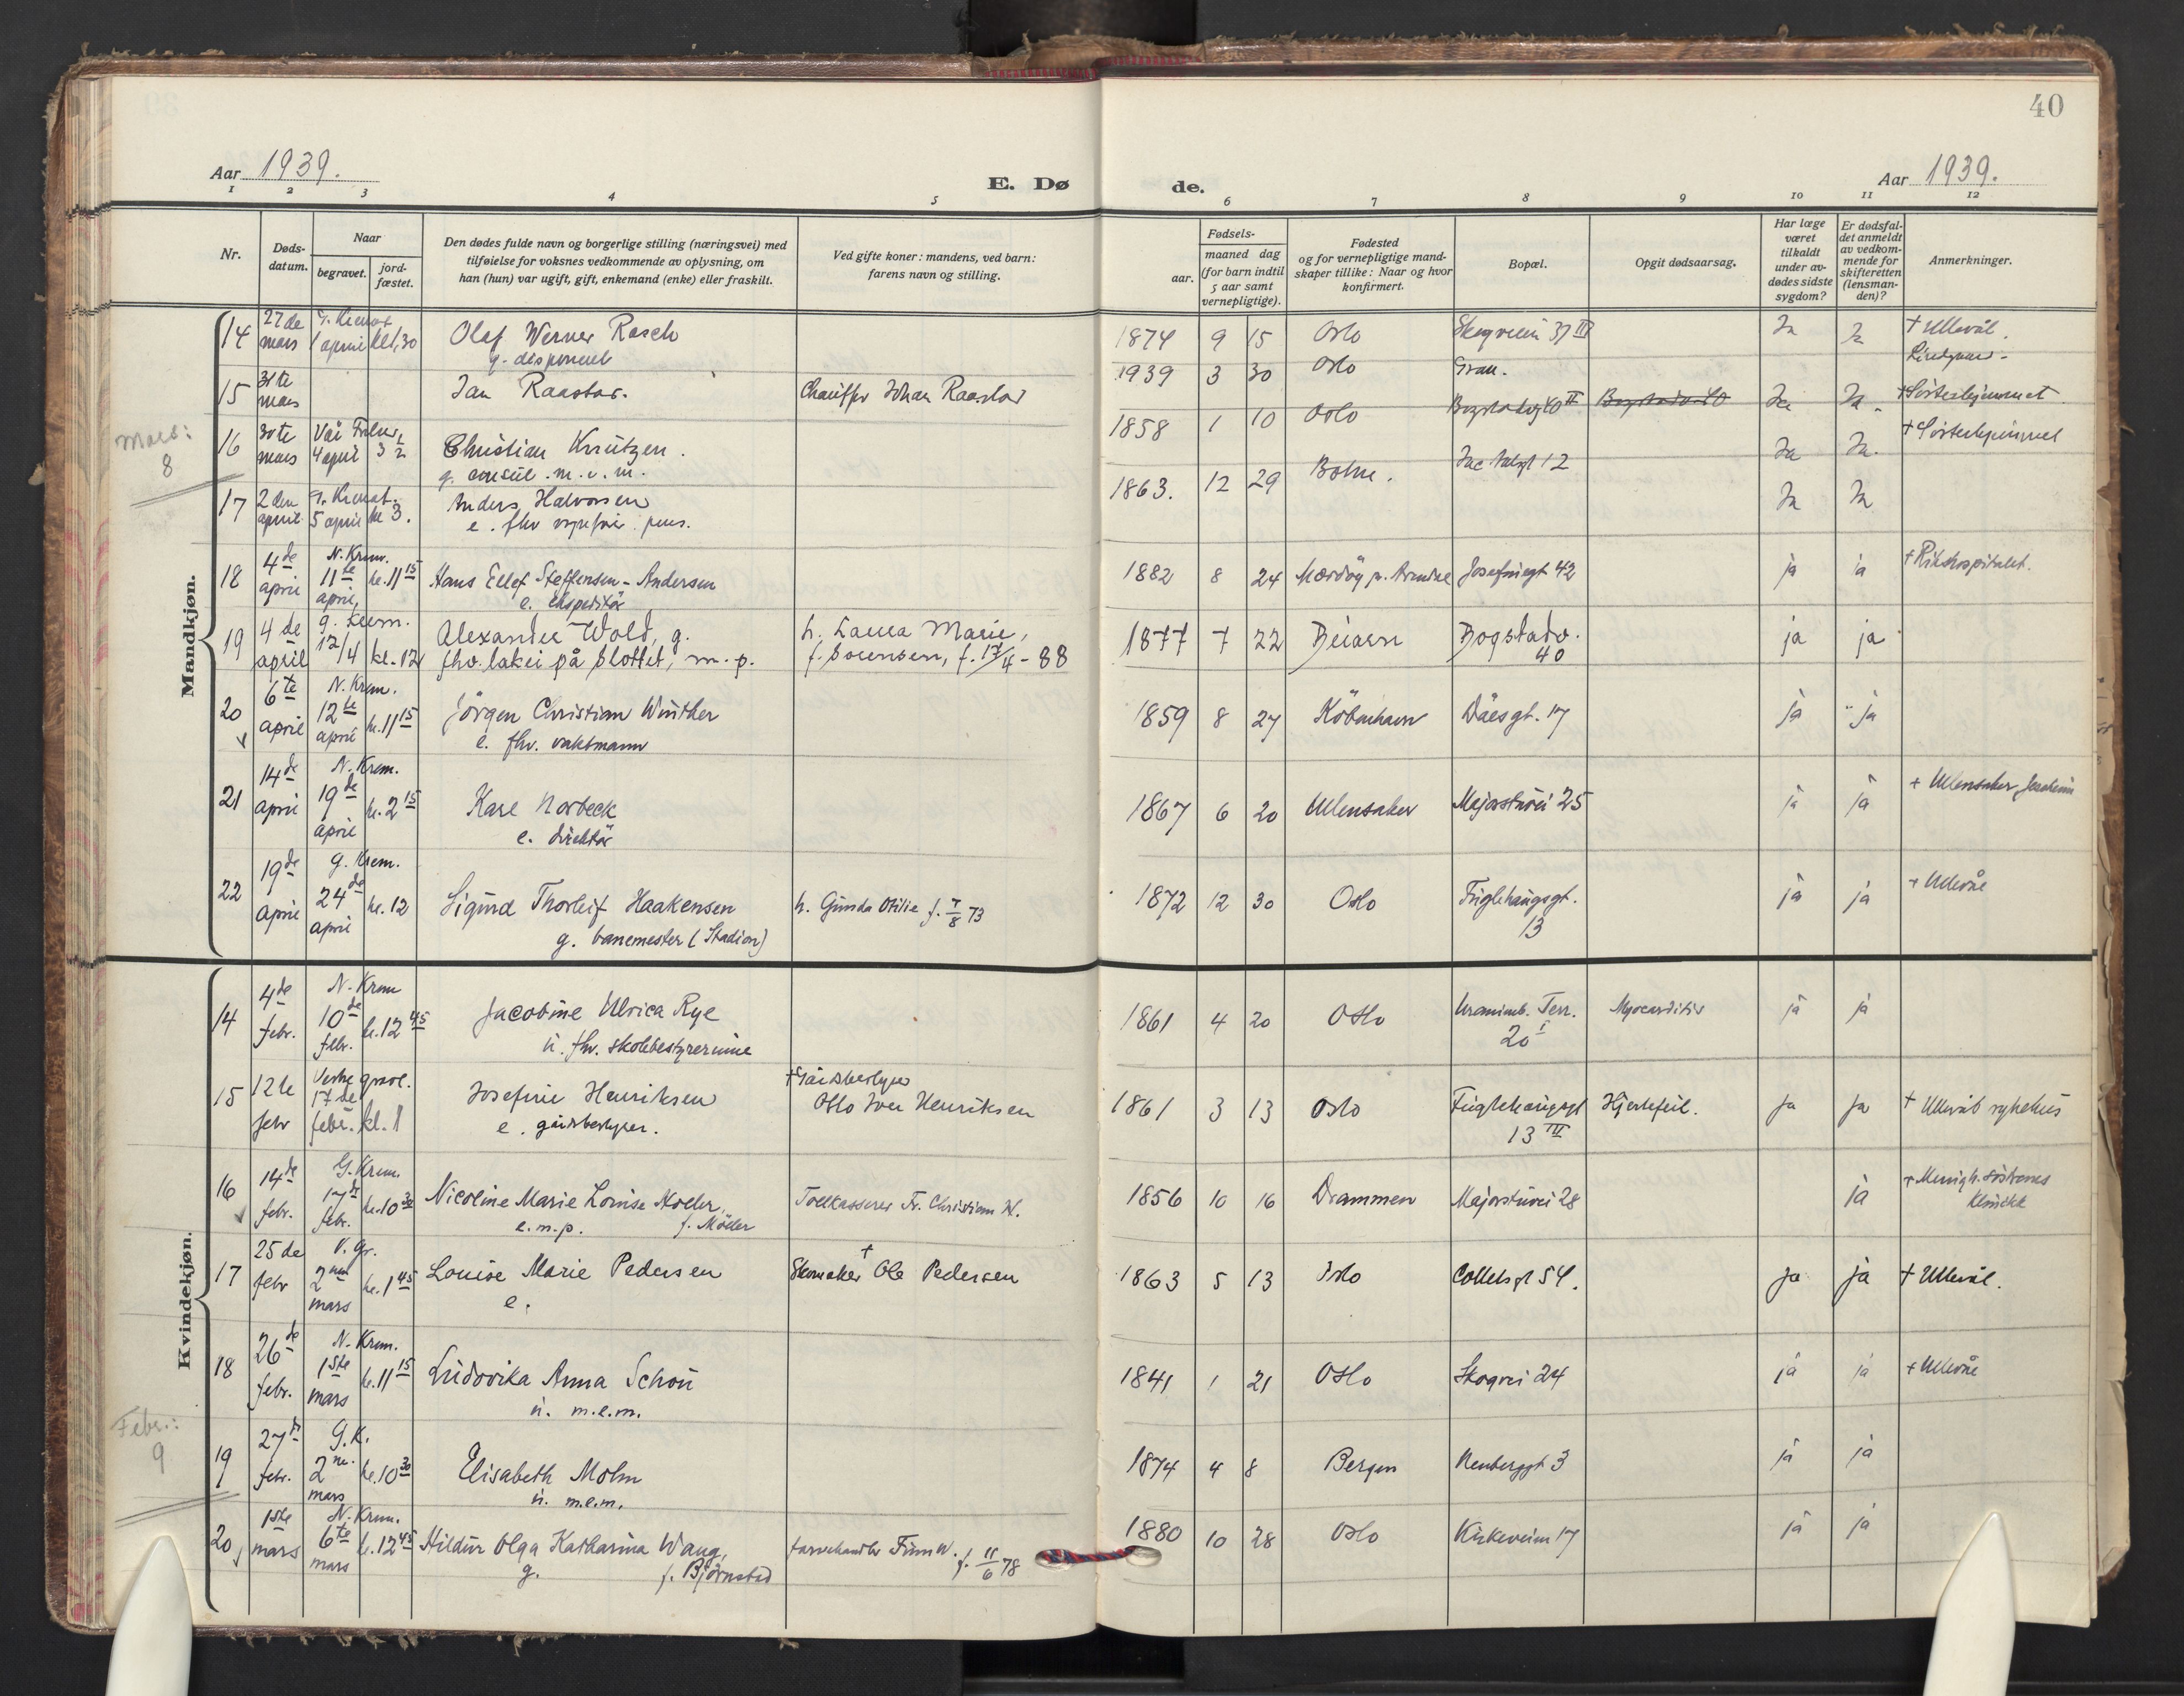 40
Aar 1939.
E. Dø
de.
Aar 1939.
1 2 3 4 5 6 7 8 9 10 11 12
Nr.
Døds-
datum.
Naar
begravet.
jord-
fæstet.
Den dødes fulde navn og borgerlige stilling (næringsvei) med
tilføielse for voksnes vedkommende av oplysning, om
han (hun) var ugift, gift, enkemand (enke) eller fraskilt.
Ved gifte koner: mandens, ved barn:
farens navn og stilling.
Fødsels-
aar.
maaned dag
(for barn indtil
5 aar samt
vernepligtige).
Fødested
og for vernepligtige mand-
skaper tillike: Naar og hvor
konfirmert.
Bopæl.
Opgit dødsaarsag.
Har læge
været
tilkaldt
under av-
dødes sidste
sygdom?
Er dødsfal-
det anmeldt
av vedkom-
mende for
skifteretten
(lensman-
den)?
Anmerkninger.
Mandkjøn.
14 27de mars 1 april kl 1,30 Olaf Werner Rasch 1874 9 15 Oslo Skogveien 37 III Ja Ja + Ullevål.
g. disponent
15 31te mars Jan Raastar. Chauffør Johan Raastar 1939 3 30 Oslo Gran.
Mars:
8
16 30te mars Vår Frelser 4 april 3 1/2 Christian Knutzen. 1858 1 10 Oslo Bogstadvj 10 II Ja Ja. + Søsterhjemmet
g. consul. m. v. m.
17 2den april G. Kremat. 5 april kl 3. Anders Halvorsen 1863. 12 29 Botne. Jac Aalsgt 12 Ja Ja
e. fhv
18 4de april N. Krem. 11te april, kl. 11 15 Hans Ellef Steffensen-Andersen 1882 8 24 Mærdöy p. Arendal Josefinegt 42 ja ja + Rikshospitalet.
e. ekspeditör
19 4de april g. krem. 12/4 kl. 12 Alexander Wold, g. h. Laura Marie, 1877 7 22 Beiarn Bogstadv. 40 ja ja
fhv. lakei på slottet, m. p. f. Sörensen, f. 17/4 - 88
20 6te april N. Krem. 12te april kl. 11 15 Jörgen Christian Winther 1859 8 27 Köbenhavn Daesgt. 17 ja ja
e. fhv. vaktmann
21 14de april N. Krem. 19de april kl. 2 15 Karl Norbeck 1867 6 20 Ullensaker Majorstuvei 25 ja ja + Ullensaker
e. direktör
22 19de april g. Krem. 24de april kl. 12 Sigurd Thorleif Haakensen h. Gunda Otilie f. 7/8 73 1872 12 30 Oslo Fuglehaugsgt. 13 ja ja + Ullevål
g. banemester (Stadion)
Kvindekjøn.
14 4de febr. N. Krem 10de febr. kl. 12 45 Jacobine Ulrica Rye 1861 4 20 Oslo Uranienb. Terr. 20 I Myocarditis ja ja
u. fhv. skolebestyrerinne
15 12te febr Vestre grav. 17de febr. kl. 1 Josefine Henriksen + Gårdbestyrer Otto Iver Henriksen 1861 3 13 Oslo Fuglehaugsgt 13 IV Hjertefeil. ja ja + Ullevål sykehus
e. gårdbestyrer.
16 14de febr. G. Krem. 17de febr. kl. 10 30 Nicoline Marie Louise Holler, Tollkasserer Fr. Christian H. 1856 10 16 Drammen Majorstuvei 28 ja + Menigh. söstrenes Klinikk
e. m. p. f. Möller
17 25de febr V. gr. 2nen mars kl. 1 45 Louise Marie Pedersen Skomaker + Ole Pedersen 1863 5 13 Oslo Colletsgt 54. ja ja + Ullevål.
e.
18 26de febr. N. Krem. 1ste mars kl. 11 15 Ludovika Anna Schou 1841 1 21 Oslo Skogvei 24 ja ja + Ullevål
u. m.e.m.
Febr.:
9
19 27de febr. G.K. 2nen mars kl. 10 30 Elisabeth Mohn 1874 4 8 Bergen Neuberggt 3 ja ja
u. m.e.m.
20 1ste mars N. Krem. 6te mars kl. 12 45 Hildur Olga Katharina Wang, farvehandler Finn W. f. 11/6 78 1880 10 28 Oslo Kirkeveien 17 ja ja
g. f. Björnstad